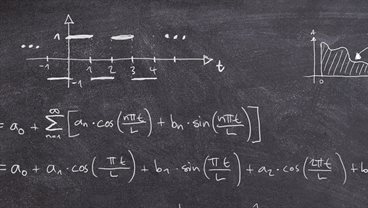 ... 1 ...
-1 1 2 3 4 t
= a₀ + ∞∑n=1 [ aₙ · cos(nπt/L) + bₙ · sin(nπt/L) ]
= a₀ + a₁ · cos(πt/L) + b₁ · sin(πt/L) + a₂ · cos(2πt/L) + b